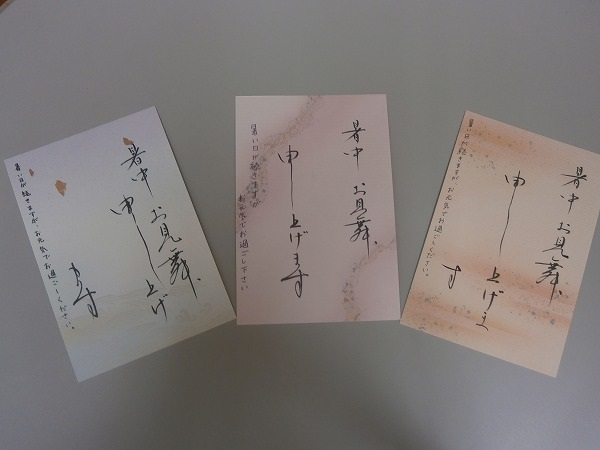 暑中お見舞
申し上げ
ます
暑い日が続きますが、お元気でお過ごしください。
暑中お見舞
申し上げます
暑い日が続きますが
お元気でお過ごし下さい
暑中お見舞
申し上げま
す
暑い日が続きますが お元気でお過ごしください。